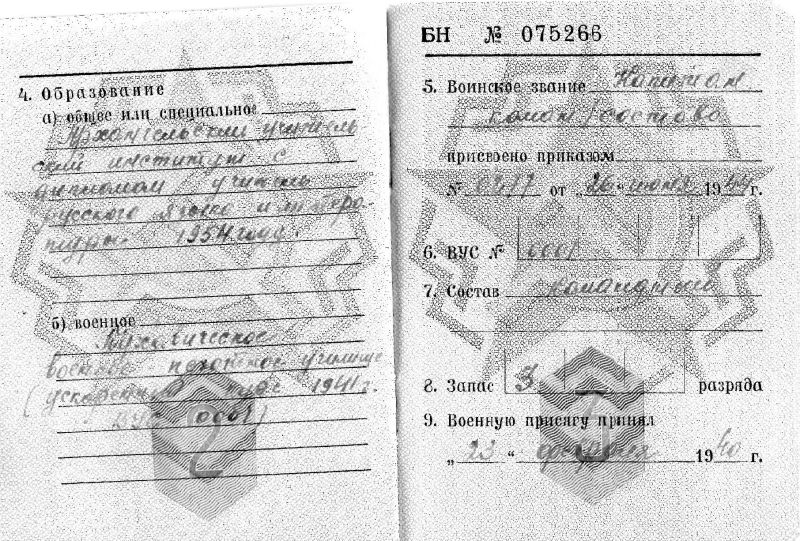 4. Образование
а) общее или специальное
Архангельский учитель
ский институт с
дипломом учитель
русского языка и литера-
туры. 1954 году.
б) военное
военно пехотное училище
(ускоренный курс 1941 г.
ВУС 0001)
2
БН № 075266
5. Воинское звание Капитан
команд. состава
присвоено приказом
№ от „26“ июня 1944 г.
6. ВУС № 0001
7. Состав командный
8. Запас 3 разряда
9. Военную присягу принял
„23“ февраля 1940 г.
1